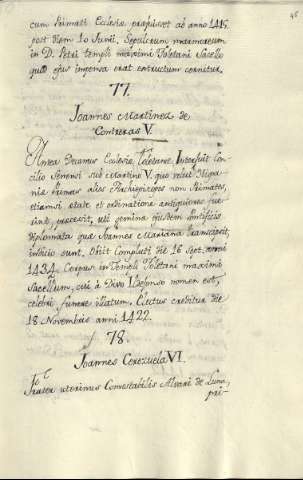 46
cum Primati Ecclesie præfuisset ab anno 1415.
post diem 10 Junii. Sepulcrum marmoreum
in D. Petri templi maximi Toletani Sacello
quod ejus impensa erat extructum cernitur.
77.
Joannes Martinez de
Contreras V.
Antea Decanus Ecclesie Toletane. Interfuit Con
cilio Senensi sub Martino V. quo relut Hispa
nie Primas alios Archiepiscopos non Primates,
etiamsi etate et ordinatione antiquiores fue
rint, precessit, uti gemina ejusdem Pontificis
diplomata que Joannes Mariana transcripsit,
indicio sunt. Obiit Compluti die 16 Sept. anni
1434. Corpus in Templi Toletani maximi
Sacellum, cui à Divo Ildefonso nomen est,
celebri funere illatum. Electus creditur die
18 Novembris anni 1422.
78.
Joannes Cerezuela VI.
Frater uterinus Comestabilis Alvari de Luna,
pri-